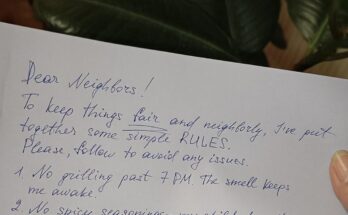 Dear Neighbors!
To keep things fair and neighborly, I've put
together some simple RULES.
Please, follow to avoid any issues.
1. No grilling past 7 PM. The smell keeps
me awake.
2. No spicy seasonings